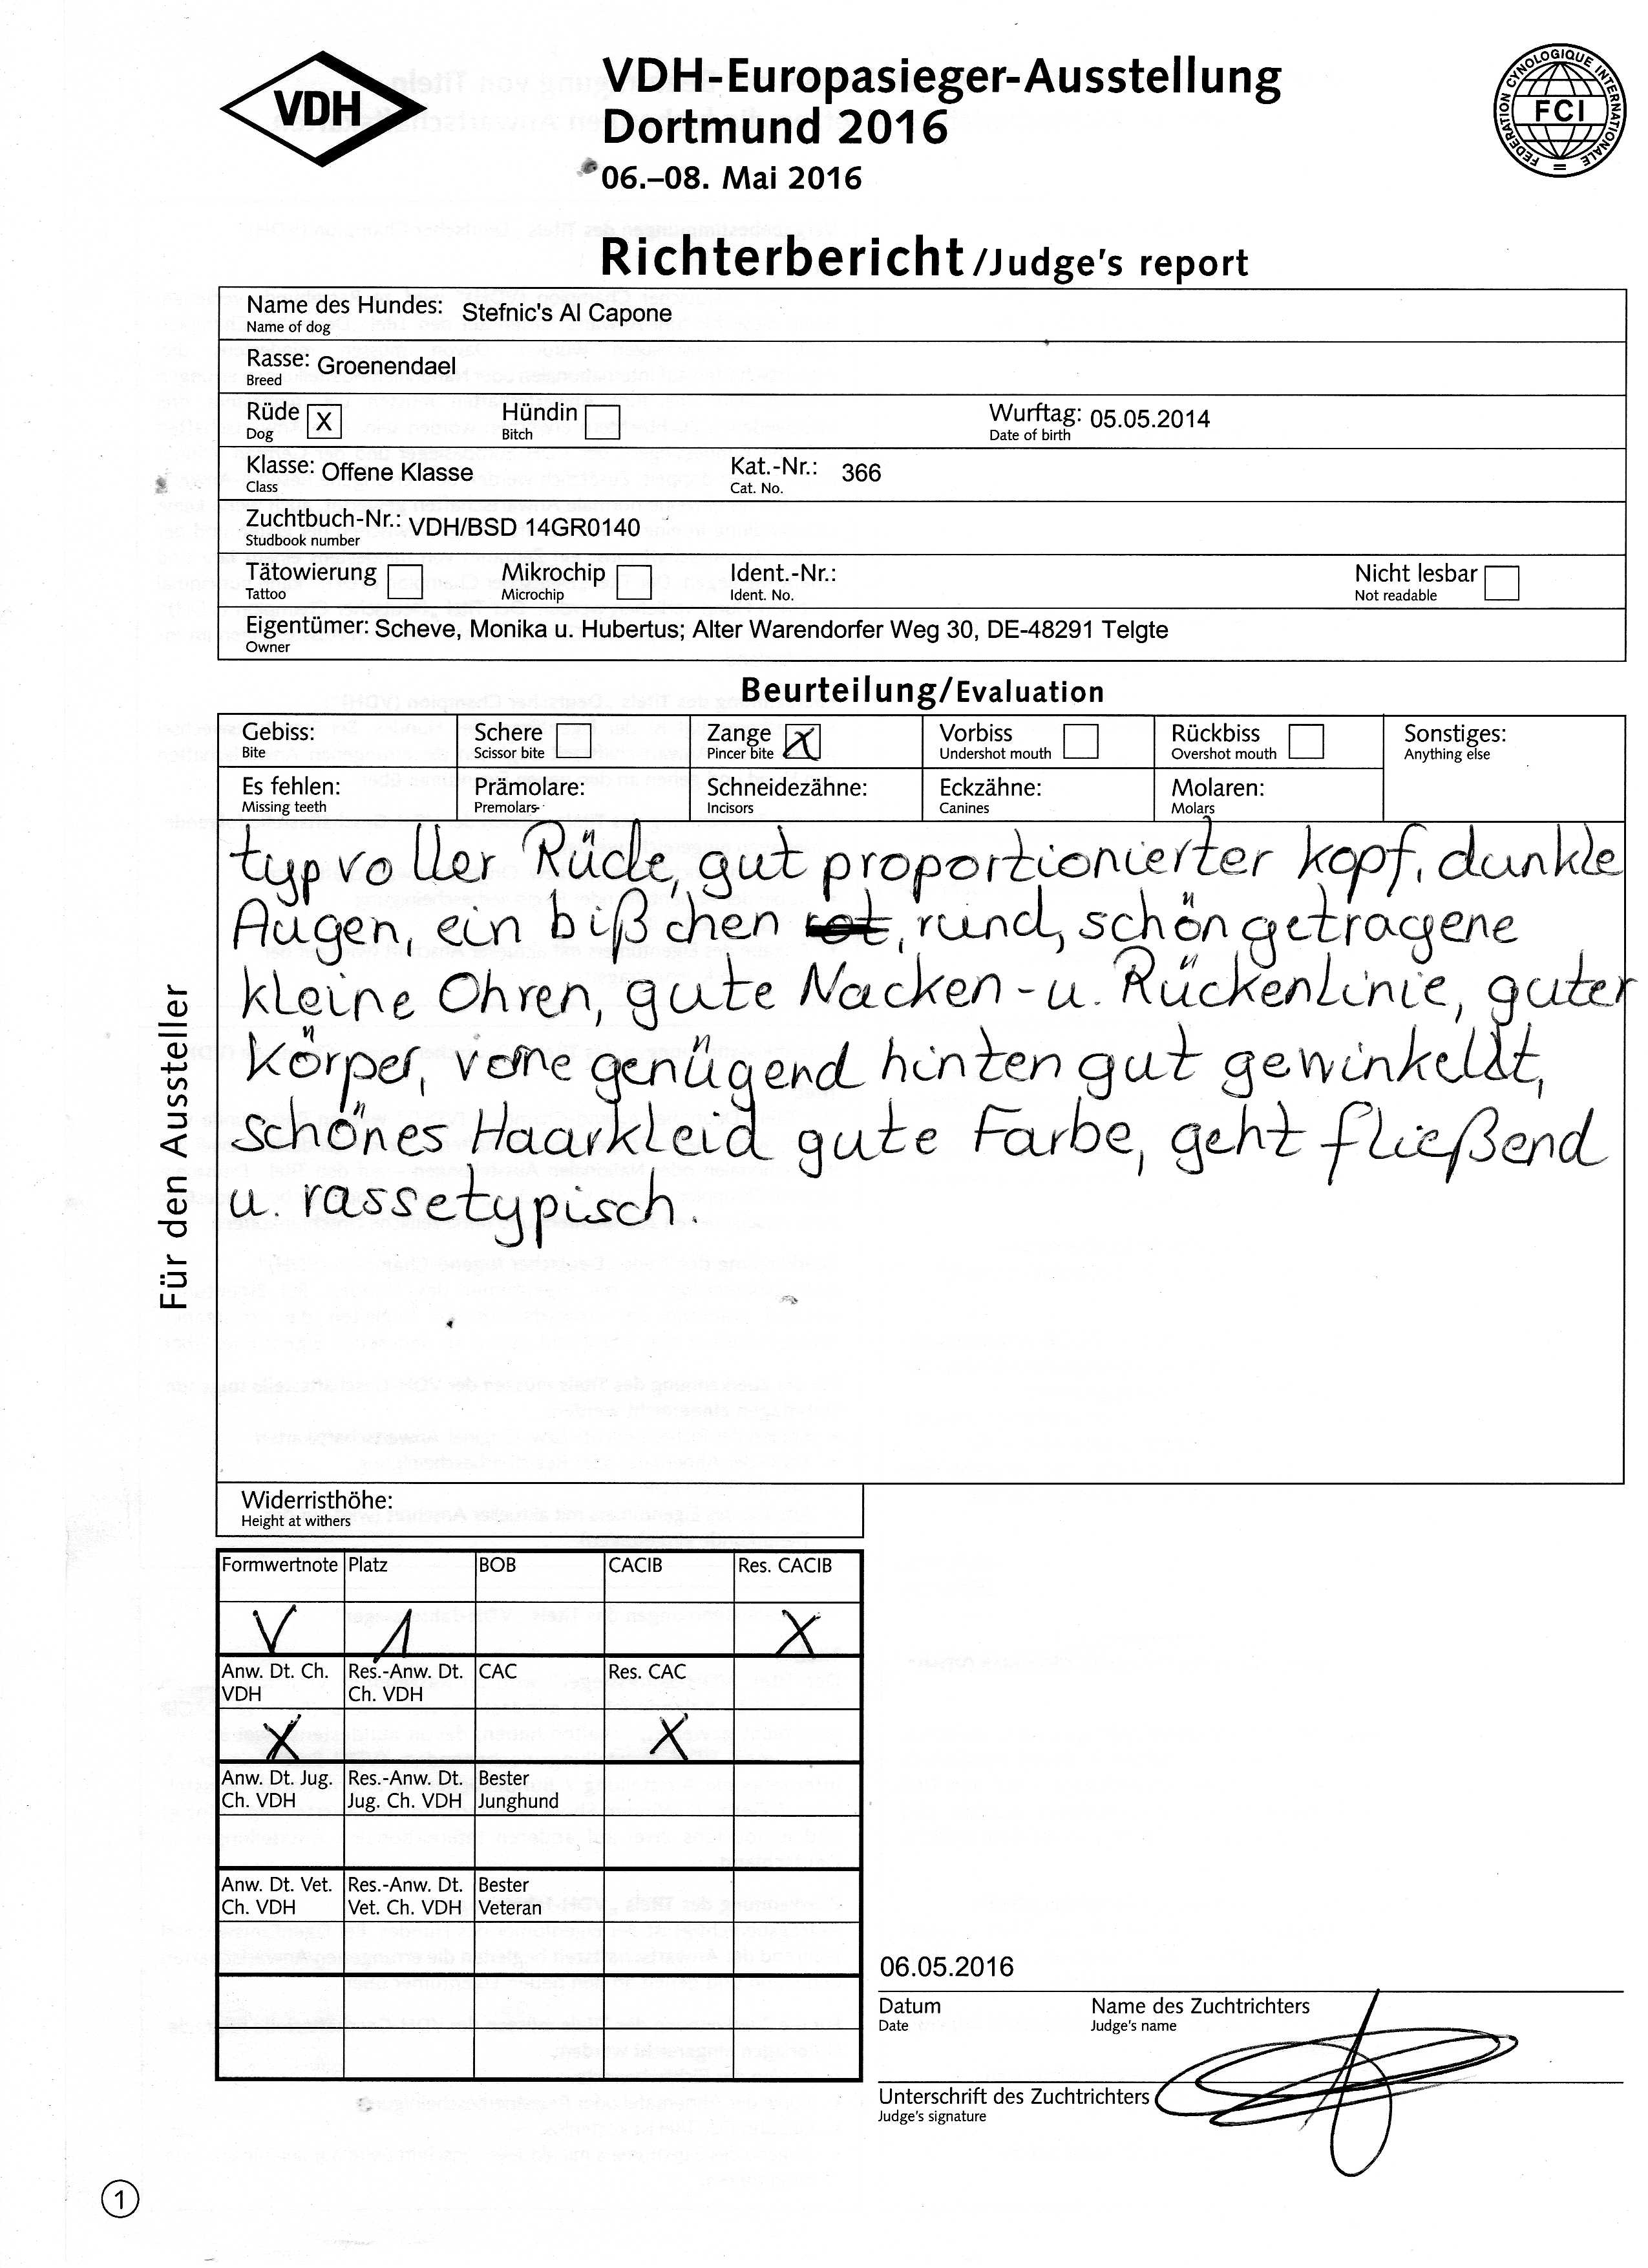 VDH
VDH-Europasieger-Ausstellung
Dortmund 2016
06.–08. Mai 2016
FEDERATION CYNOLOGIQUE INTERNATIONALE
FCI
Richterbericht /Judge's report
Name des Hundes: Stefnic's Al Capone
Name of dog
Rasse: Groenendael
Breed
Rüde X Hündin Wurftag: 05.05.2014
Dog Bitch Date of birth
Klasse: Offene Klasse Kat.-Nr.: 366
Class Cat. No.
Zuchtbuch-Nr.: VDH/BSD 14GR0140
Studbook number
Tätowierung Mikrochip Ident.-Nr.: Nicht lesbar
Tattoo Microchip Ident. No. Not readable
Eigentümer: Scheve, Monika u. Hubertus; Alter Warendorfer Weg 30, DE-48291 Telgte
Owner
Beurteilung/Evaluation
Gebiss: Schere Zange X Vorbiss Rückbiss Sonstiges:
Bite Scissor bite Pincer bite Undershot mouth Overshot mouth Anything else
Es fehlen: Prämolare: Schneidezähne: Eckzähne: Molaren:
Missing teeth Premolars Incisors Canines Molars
typvoller Rüde, gut proportionierter Kopf, dunkle
Augen, ein bißchen rund, schön getragene
kleine Ohren, gute Nacken-u. Rückenlinie, guter
Körper, vorne genügend hinten gut gewinkelt,
schönes Haarkleid gute Farbe, geht fließend
u. rassetypisch.
Für den Aussteller
Widerristhöhe:
Height at withers
Formwertnote Platz BOB CACIB Res. CACIB
V 1 X
Anw. Dt. Ch. Res.-Anw. Dt. CAC Res. CAC
VDH Ch. VDH
X X
Anw. Dt. Jug. Res.-Anw. Dt. Bester
Ch. VDH Jug. Ch. VDH Junghund
Anw. Dt. Vet. Res.-Anw. Dt. Bester
Ch. VDH Vet. Ch. VDH Veteran
06.05.2016
Datum Name des Zuchtrichters
Date Judge's name
Unterschrift des Zuchtrichters
Judge's signature
1